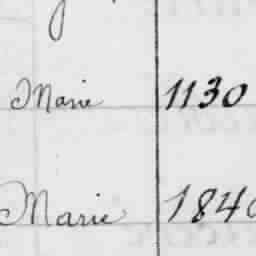 Marie 1130
Marie 1840